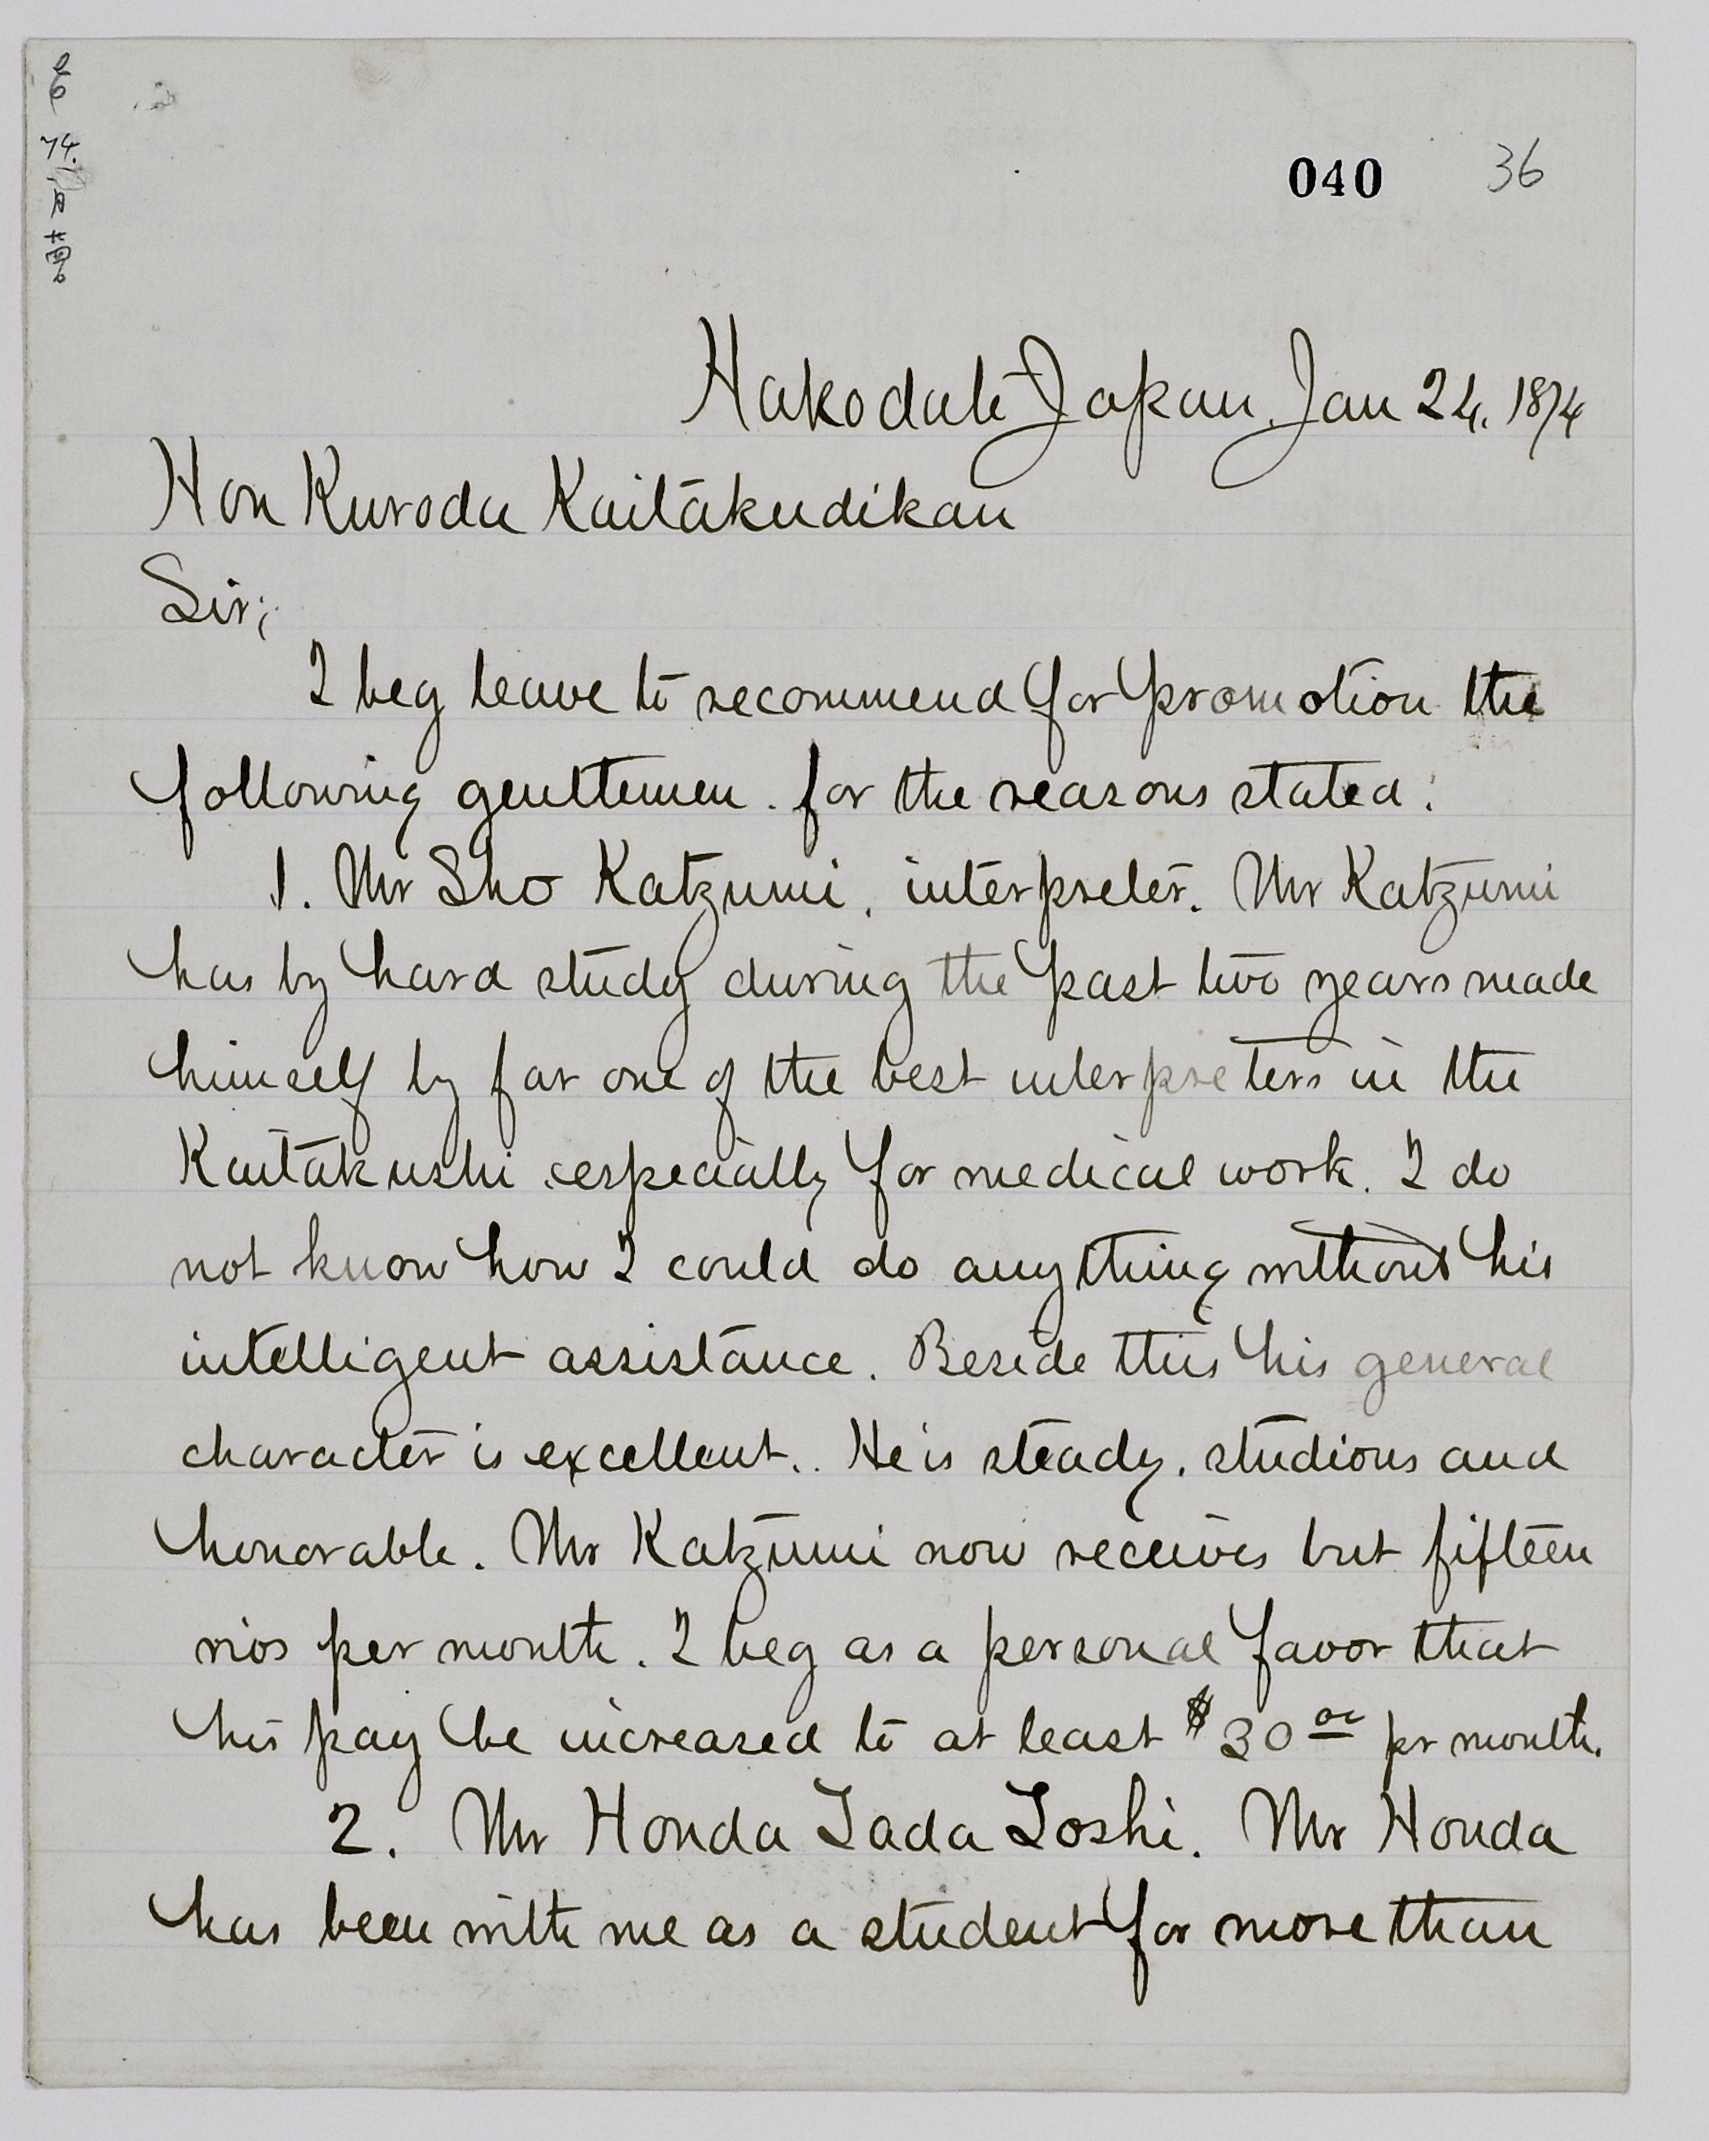 74.
040 36
Hakodate Japan. Jan 24. 1874
Hon Kuroda Kaitakudikan
Sir;
I beg leave to recommend for promotion the
following gentlemen. for the reasons stated:
1. Mr Sho Katzumi, interpreter. Mr Katzumi
has by hard study during the past two years made
himself by far one of the best interpreters in the
Kaitakushi especially for medical work. I do
not know how I could do anything without his
intelligent assistance. Beside this his general
character is excellent. He is steady, studious and
honorable. Mr Katzumi now receives but fifteen
rios per month. I beg as a personal favor that
his pay be increased to at least $30 00 pr month.
2. Mr Honda Tada Toshi. Mr Honda
has been with me as a student for more than